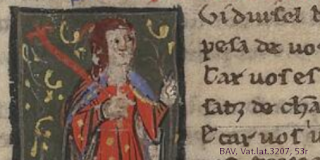 Vi diuisel d
pesa de uo
Car uos es
satz de cha
E car uos
BAV, Vat.lat.3207, 53r